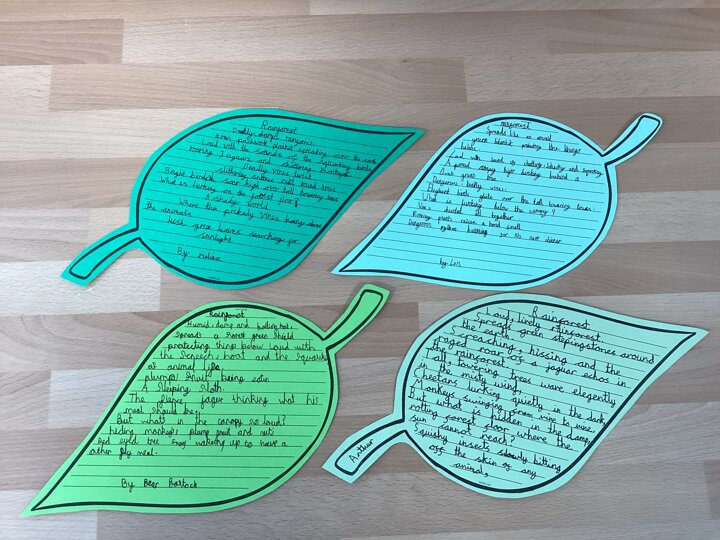 Rainforest
Deadly damp rainforest
green patchwork planket spreading over the earth
Loud with the sounds of the squawking birds
roaring Jaguars and chattering Monkeys
Deadly vines twist
slithering around tall round trees
Bright birds soar high over tall towering trees
What is lurking on the forest floor?
A shady world
Where this prickaly vines hang above
the animals
lush green leaves searching for
sunlight
By
rainforest
Spreads like an
green blanket protecting the things
below
Loud with of chattery, Screechy and squawky
Tigers stripey light lurking behind a
dark green tree
Dangerous, deadly vines.
Highest birds glide over the tall towering trees.
What is lurking below the canopy?
Vines twisted all together
Rotting plants raise a bad smell
Dangerous python hunting for its next dinner
by Lois
Rainforest
Humid, damp and boiling hot,
Spreads a green shield
protecting things below Loud with
the Screech, hoot and the Squawks
as animal life,
plump fruit being eaten
A sleeping Sloth.
The fierce jaguar thinking what his
meal should be.
But what's in the canopy so loud?
hiding monkeys, plump fruit and nuts
Red eyed tree frog wakening up to have a
nother fly meal.
By Bear Bostock
Rainforest
Loud, lively rainforest
Spreads green steppingstones around
the earth
Screaching, hissing and the
raged roar of a jaguar echos in
the rainforest
Tall towering trees wave elegently
in the misty wind,
Cheetars lurking quietly in the dark,
Monkeys swinging from vine to vine,
But what is hidden in the damp
rotting forest floor where the
sun cannot reach?
Squishy insects slowly bitting
off the skin of any
animal.